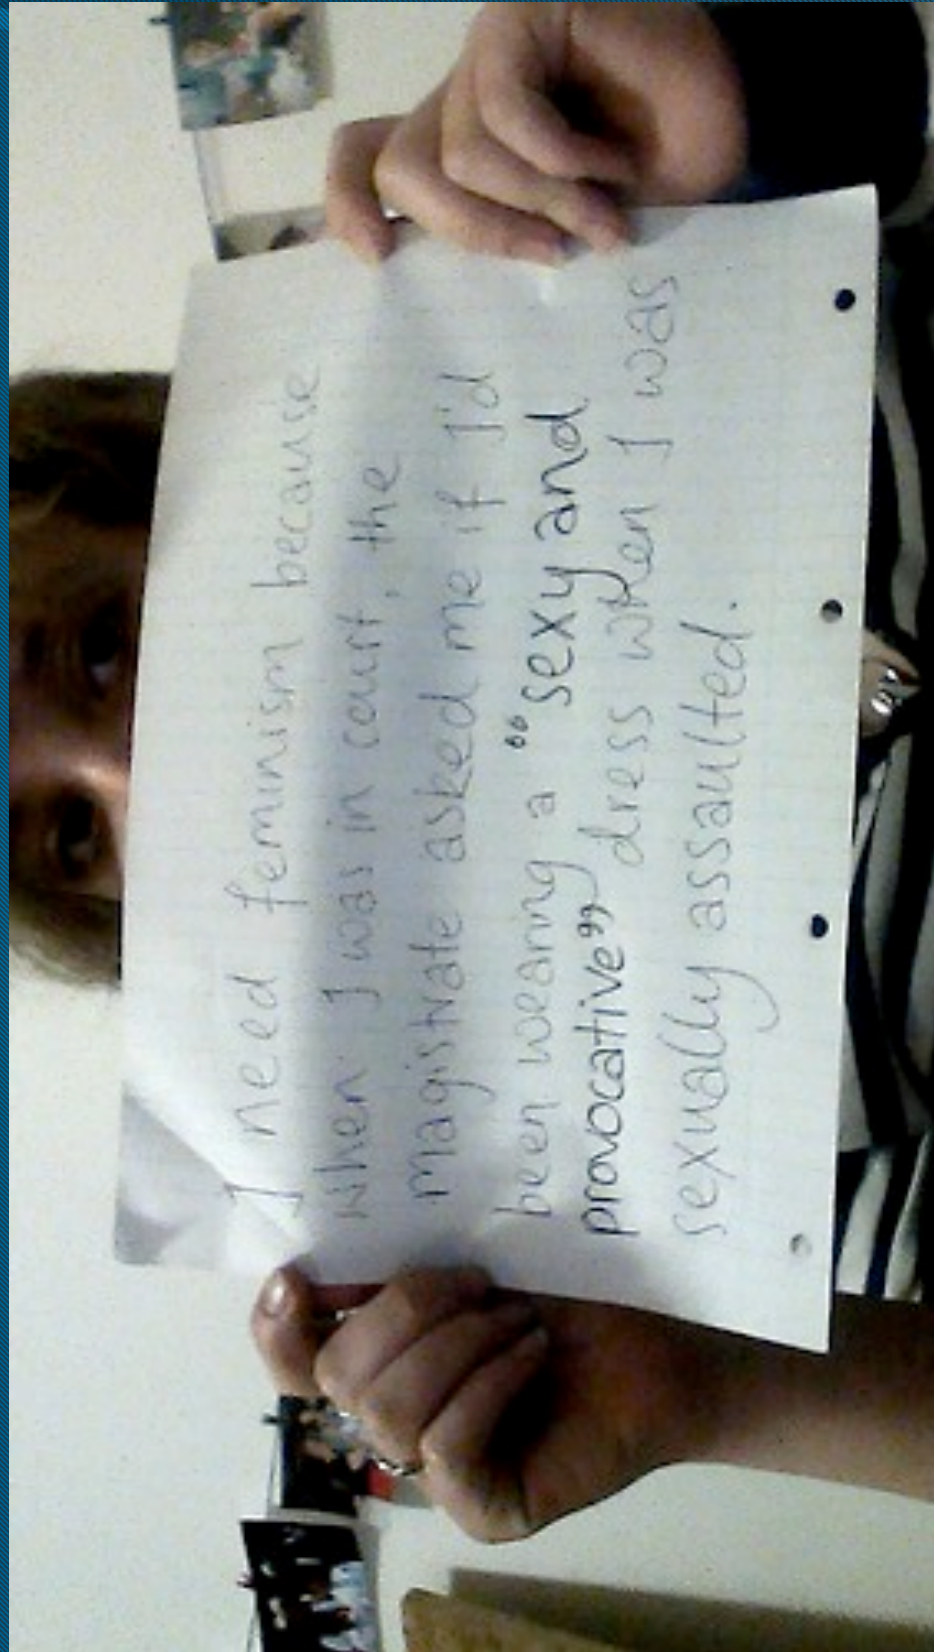 I need feminism because
when I was in court, the
magistrate asked me if I'd
been wearing a “sexy and
provocative” dress when I was
sexually assaulted.